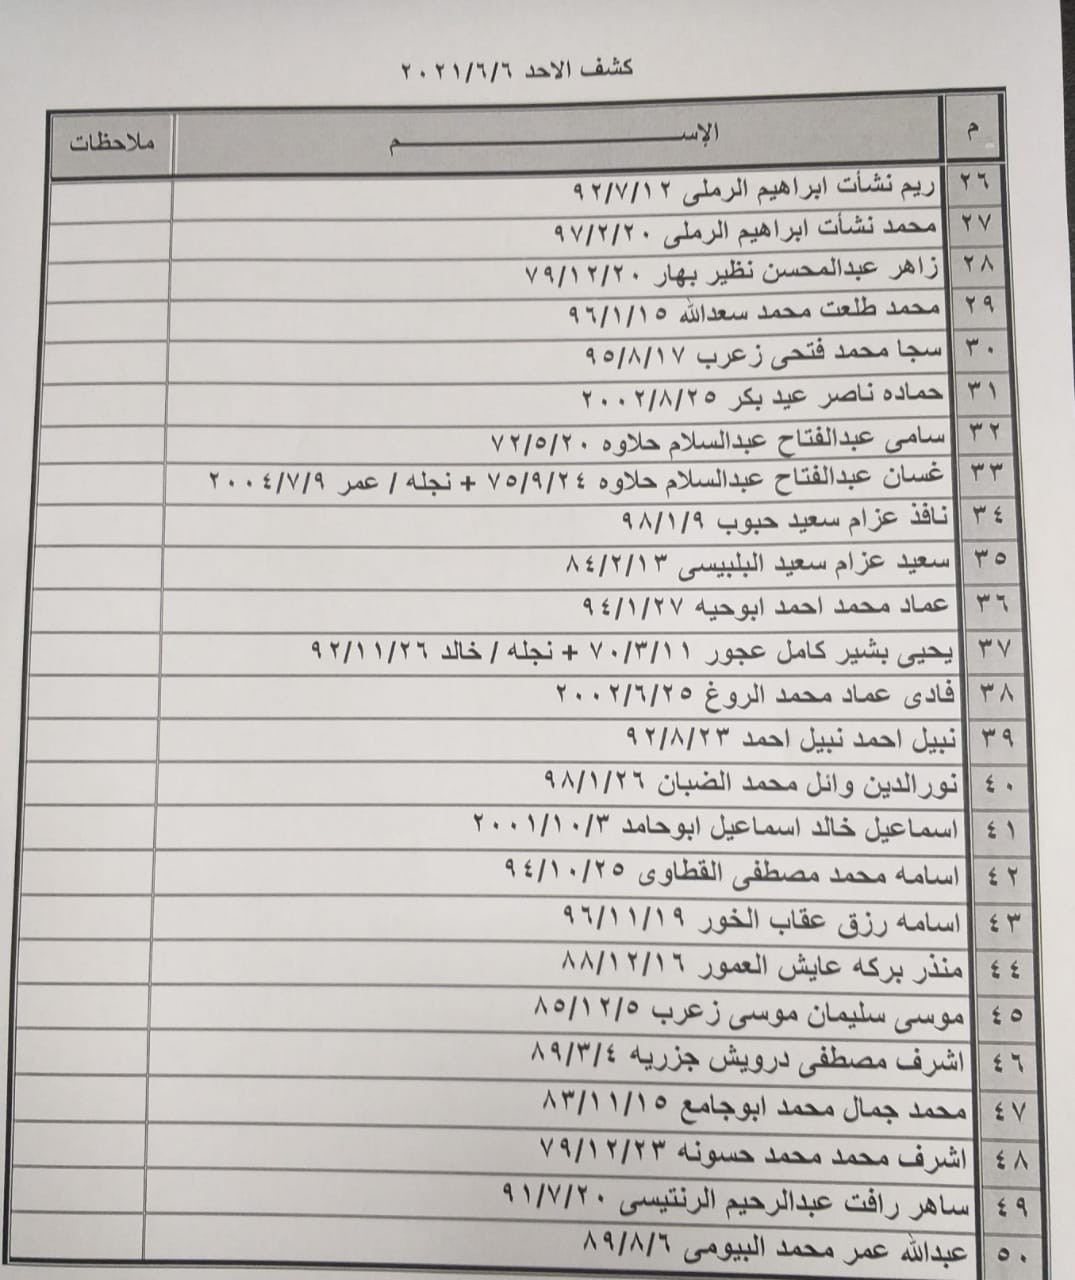 كشف الاحد ٢٠٢١/٦/٦
م الإســـــــم ملاحظات
٢٦ ريم نشأت ابراهيم الرملى ٩٢/٧/١٢
٢٧ محمد نشأت ابراهيم الرملى ٩٧/٢/٢٠
٢٨ زاهر عبدالمحسن نظير بهار ٧٩/١٢/٢٠
٢٩ محمد طلعت محمد سعدالله ٩٦/١/١٥
٣٠ سجا محمد فتحى زعرب ٩٥/٨/١٧
٣١ حماده ناصر عيد بكر ٢٠٠٢/٨/٢٥
٣٢ سامى عبدالفتاح عبدالسلام حلاوه ٧٢/٥/٢٠
٣٣ غسان عبدالفتاح عبدالسلام حلاوه ٧٥/٩/٢٤ + نجله / عمر ٢٠٠٤/٧/٩
٣٤ نافذ عزام سعيد حبوب ٩٨/١/٩
٣٥ سعيد عزام سعيد البلبيسى ٨٤/٢/١٣
٣٦ عماد محمد احمد ابوحيه ٩٤/١/٢٧
٣٧ يحيى بشير كامل عجور ٧٠/٣/١١ + نجله / خالد ٩٢/١١/٢٦
٣٨ فادى عماد محمد الروغ ٢٠٠٢/٦/٢٥
٣٩ نبيل احمد نبيل احمد ٩٢/٨/٢٣
٤٠ نورالدين وائل محمد الضبان ٩٨/١/٢٦
٤١ اسماعيل خالد اسماعيل ابوحامد ٢٠٠١/١٠/٣
٤٢ اسامه محمد مصطفى القطاوى ٩٤/١٠/٢٥
٤٣ اسامه رزق عقاب الخور ٩٦/١١/١٩
٤٤ منذر بركه عايش العمور ٨٨/١٢/١٦
٤٥ موسى سليمان موسى زعرب ٨٥/١٢/٥
٤٦ اشرف مصطفى درويش جزريه ٨٩/٣/٤
٤٧ محمد جمال محمد ابوجامع ٨٣/١١/١٥
٤٨ اشرف محمد محمد حسونه ٧٩/١٢/٢٣
٤٩ ساهر رافت عبدالرحيم الرنتيسى ٩١/٧/٢٠
٥٠ عبدالله عمر محمد البيومى ٨٩/٨/٦